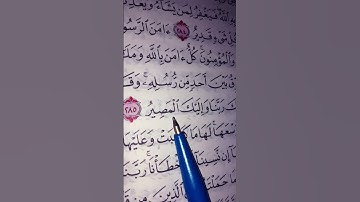 فيغفر لمن يشاء ويعذ
وقدير ٢٨٤ ءامن الرسو
والمؤمنون كل ءامن بالله ومل
ق بين أحد من رسله وقا
ك ربنا وإليك المصير ٢٨٥
سعها لها ما كسبت وعليها
نآ إن نسينآ أخطأنا ربنا
ما حملته الذين من